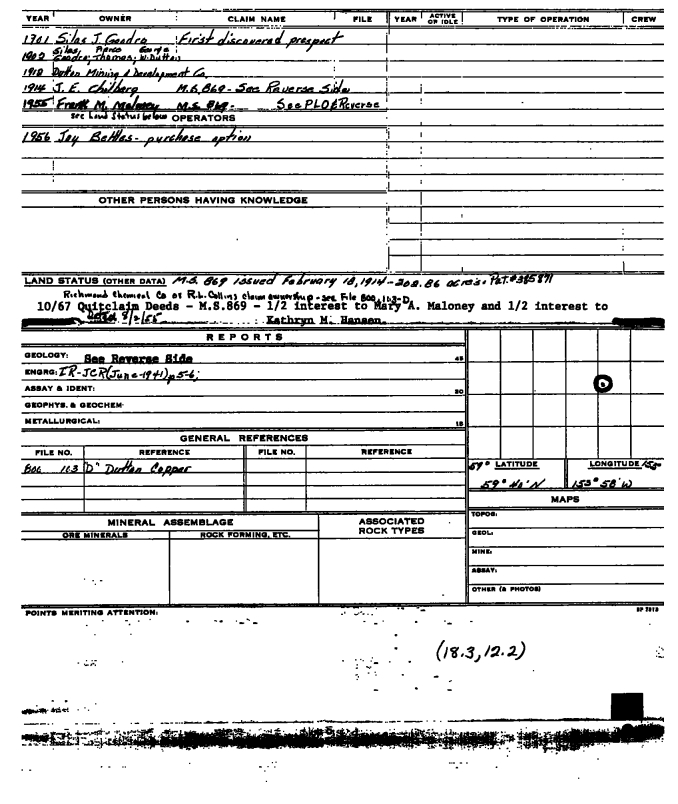 YEAR OWNER CLAIM NAME FILE YEAR ACTIVE OR IDLE TYPE OF OPERATION CREW
1901 Silas J. Goodro First discovered prospect
1902 Silas, Pierce George
Goodro, Thomas, W. Dutton
1912 Dutton Mining & Development Co.
1914 J. E. Chilberg M.S. 869 - See Reverse Side
1955 Frank M. Maloney M.S. 869 - See PLO & Reverse
see Land Status below OPERATORS
1956 Jay Bettles - purchase option
OTHER PERSONS HAVING KNOWLEDGE
LAND STATUS (OTHER DATA) M.S. 869 issued February 18, 1914 - 202.86 acres. Pat. #385871
Richmond Chemical Co or R.L. Collins claim ownership - see File 800, 103-D
10/67 Quitclaim Deeds - M.S.869 - 1/2 interest to Mary A. Maloney and 1/2 interest to
Dated 9/2/55 Kathryn M. Hansen.
REPORTS
GEOLOGY: See Reverse Side 45
ENGRG: IR-JCR (June-1941) p5-6;
ASSAY & IDENT: 30
GEOPHYS. & GEOCHEM.
METALLURGICAL: 15
GENERAL REFERENCES
FILE NO. REFERENCE FILE NO. REFERENCE
800 103 "D" Dutton Copper
59° LATITUDE LONGITUDE 153°
59° 40' N 153° 58' W
MAPS
MINERAL ASSEMBLAGE ASSOCIATED ROCK TYPES
ORE MINERALS ROCK FORMING, ETC.
TOPOG:
GEOL:
MINE:
ASSAY:
OTHER (& PHOTOS)
POINTS MERITING ATTENTION:
(18.3, 12.2)